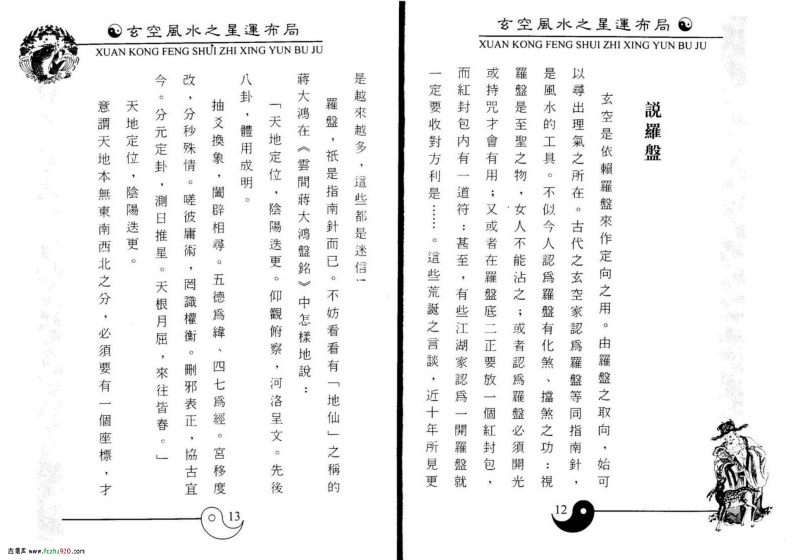 玄空風水之星運布局
XUAN KONG FENG SHUI ZHI XING YUN BU JU
説羅盤
玄空是依賴羅盤來作定向之用。由羅盤之取向，始可
以尋出理氣之所在。古代之玄空家認爲羅盤等同指南針，
是風水的工具。不似今人認爲羅盤有化煞、擋煞之功：視
羅盤是至聖之物，女人不能沾之；或者認爲羅盤必須開光
或持咒才會有用；又或者在羅盤底二正要放一個紅封包，
而紅封包内有一道符：甚至，有些江湖家認爲一開羅盤就
一定要收對方利是……。這些荒誕之言談，近十年所見更
12
玄空風水之星運布局
XUAN KONG FENG SHUI ZHI XING YUN BU JU
是越來越多，這些都是迷信！
羅盤，祇是指南針而已。不妨看看有「地仙」之稱的
蔣大鴻在《雲間蔣大鴻盤銘》中怎樣地說：
「天地定位，陰陽迭更。仰觀俯察，河洛呈文。先後
八卦，體用成明。
抽爻換象，闔辟相尋。五德爲緯、四七爲經。宮移度
改，分秒殊情。嗟彼庸術，罔識權衡。刪邪表正，協古宜
今。分元定卦，測日推星。天根月屈，來往皆春。」
天地定位，陰陽迭更。
意謂天地本無東南西北之分，必須要有一個座標，才
13
古易库 www.fczhu920.com